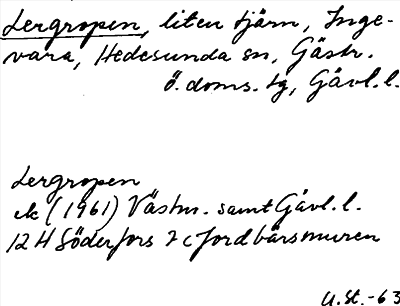 Lergropen, liten tjärn, Inge-
vara, Hedesunda sn, Gästr.
Ö. doms. tg, Gävl. l.
Lergropen
ek (1961) Västm. samt Gävl. l.
12 H Söderfors 7 c Jordbärsmuren
U. St. -63